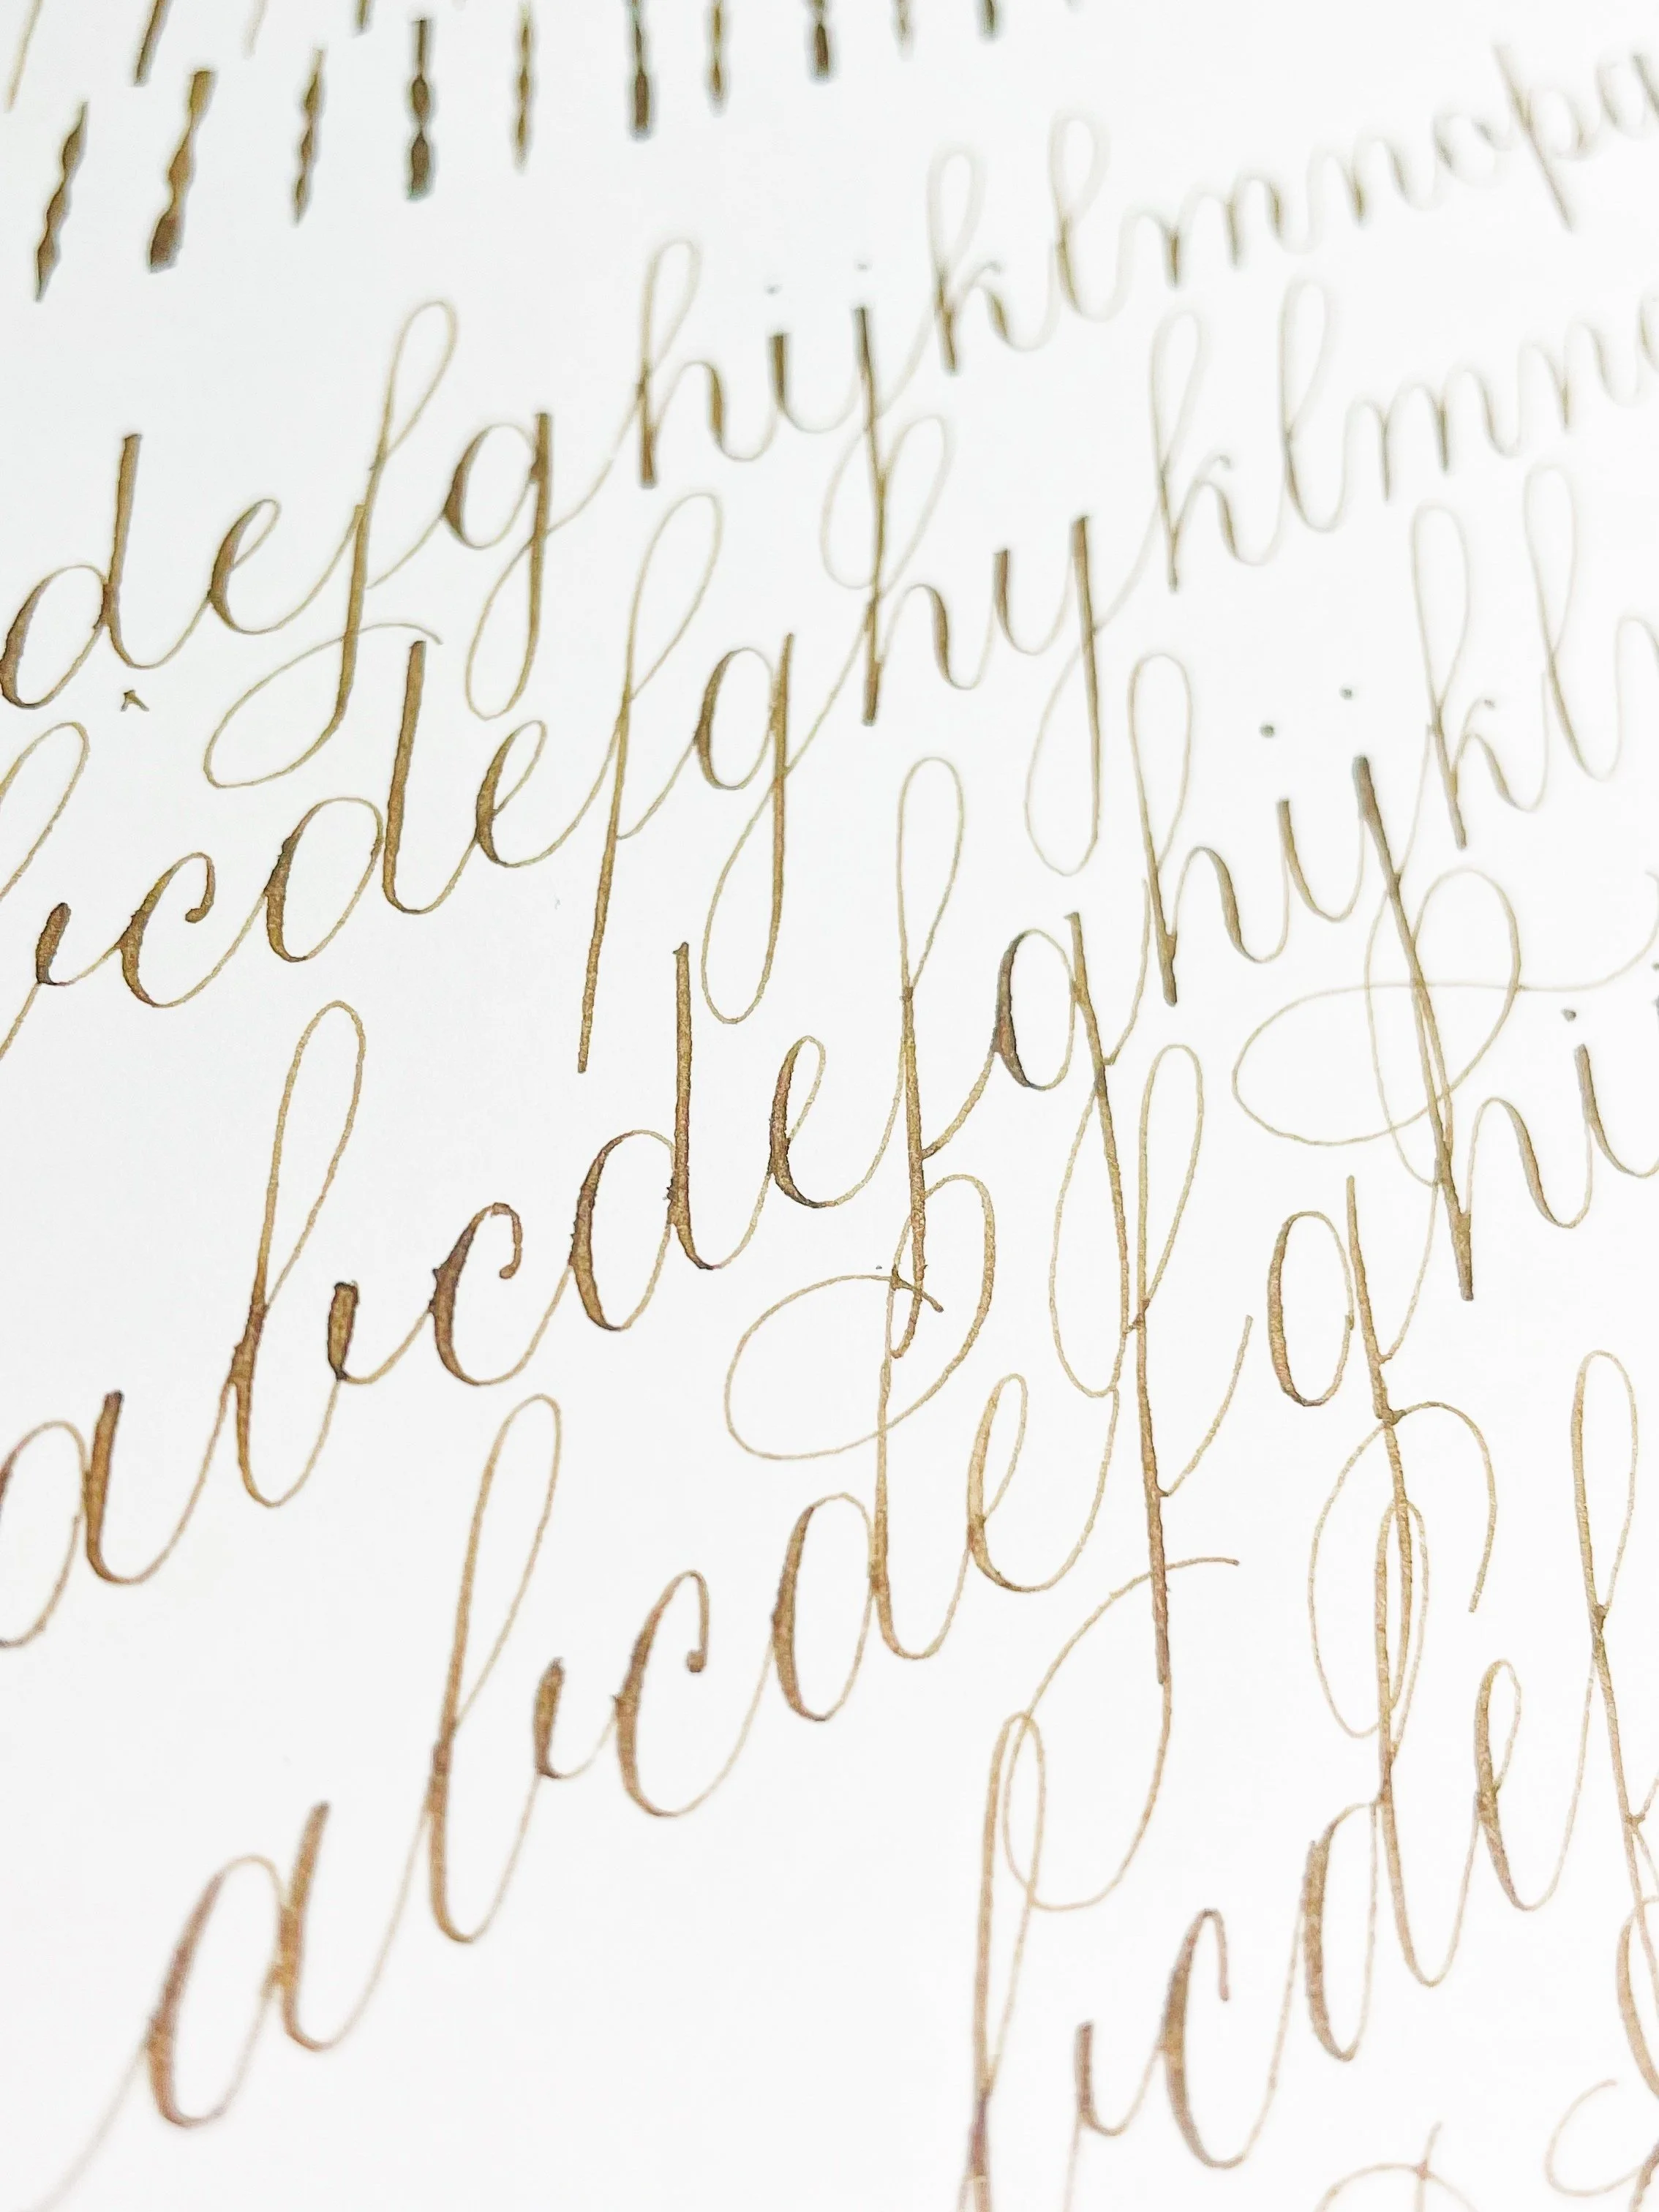 defghijklmnopq
bcdefghijklmno
abcdefghijkl
abcdefghi
bcdef